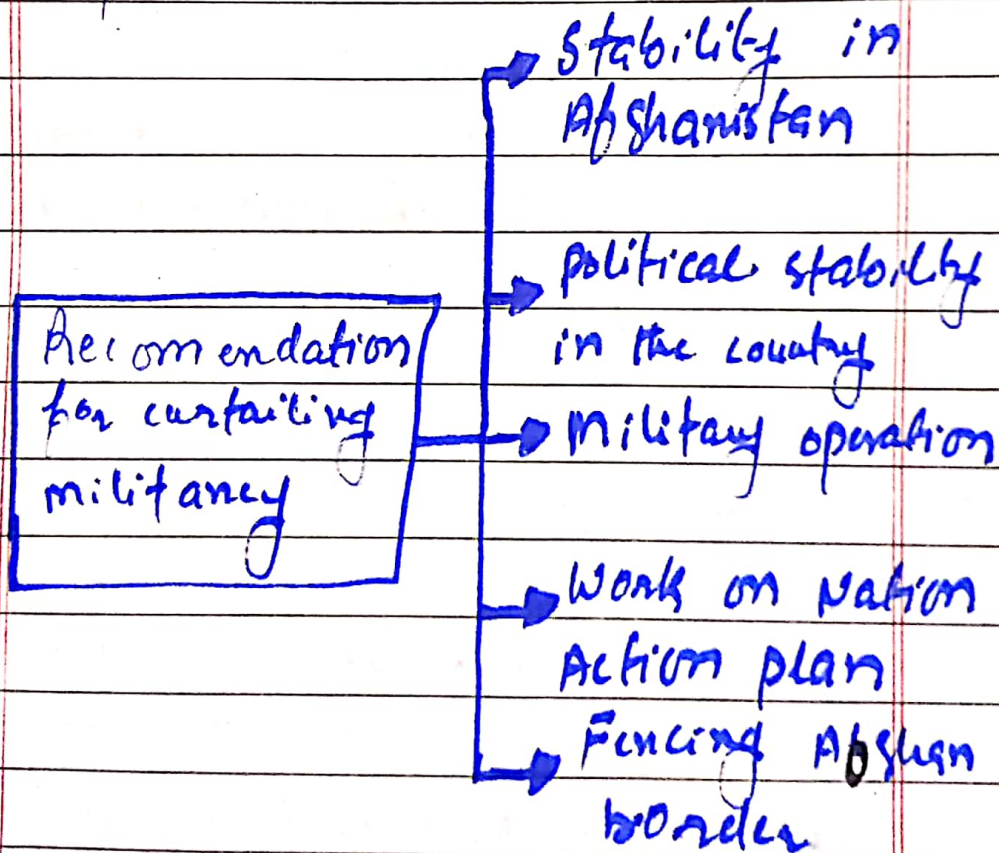 Recomendation
for curtailing
militancy
Stability in
Afghanistan
Political stability
in the country
Military operation
Work on Nation
Action plan
Fencing Afghan
border